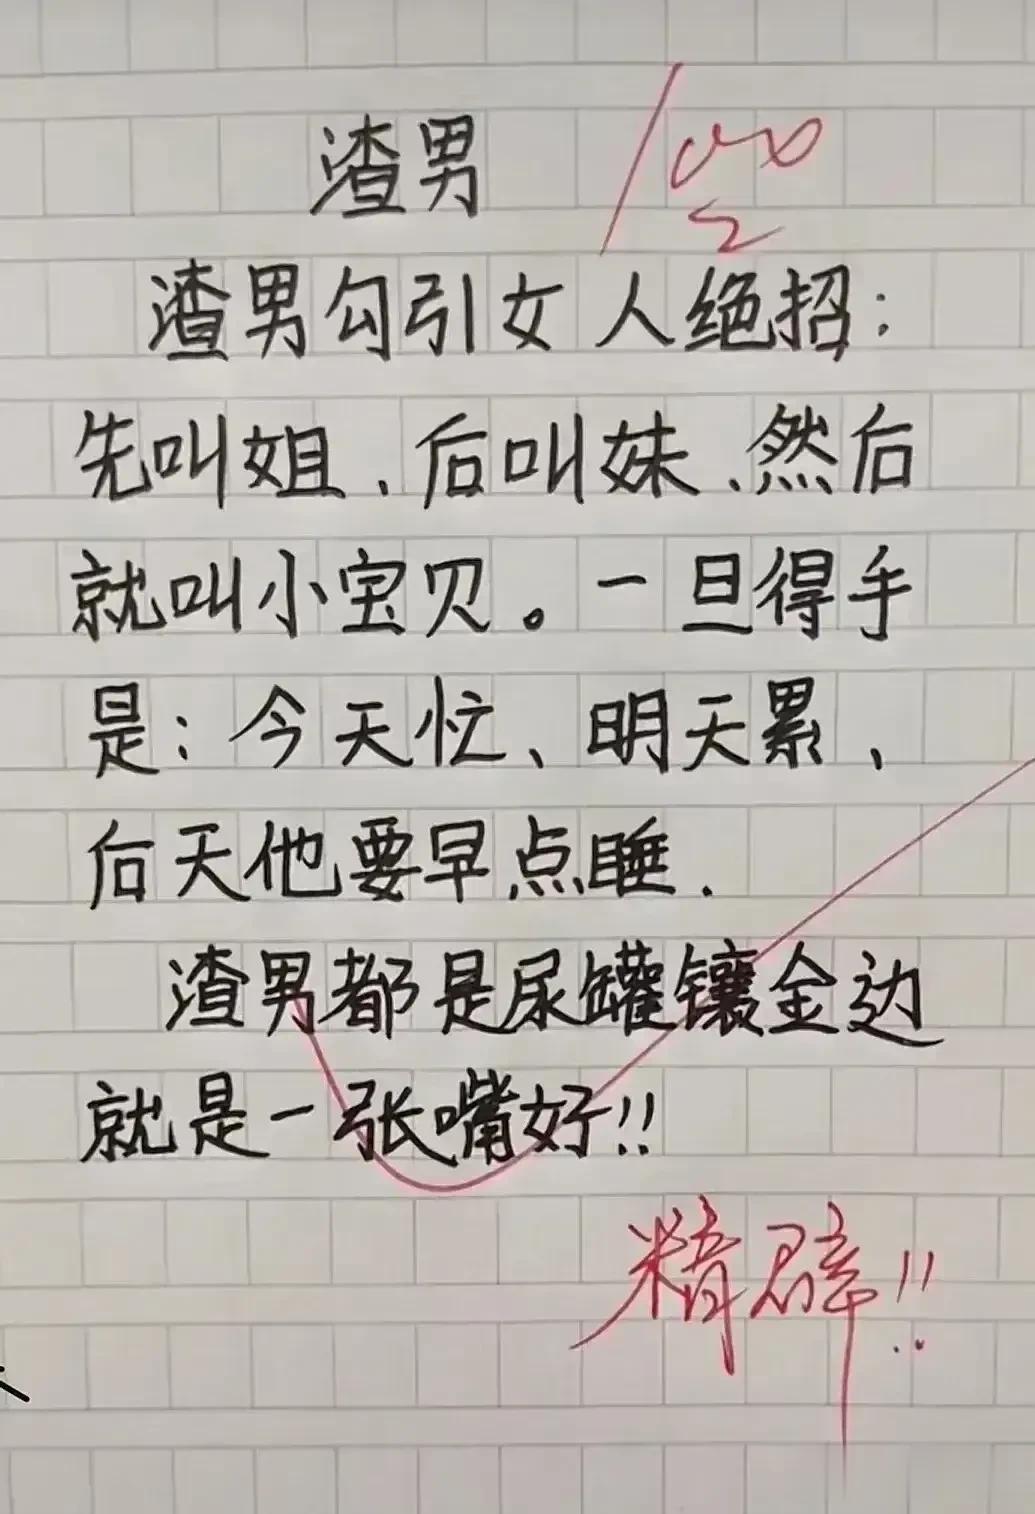 渣男 100
渣男勾引女人绝招:
先叫姐、后叫妹、然后
就叫小宝贝。一旦得手
是:今天忙、明天累、
后天他要早点睡.
渣男都是尿罐镶金边
就是一张嘴好!!
精辟!!